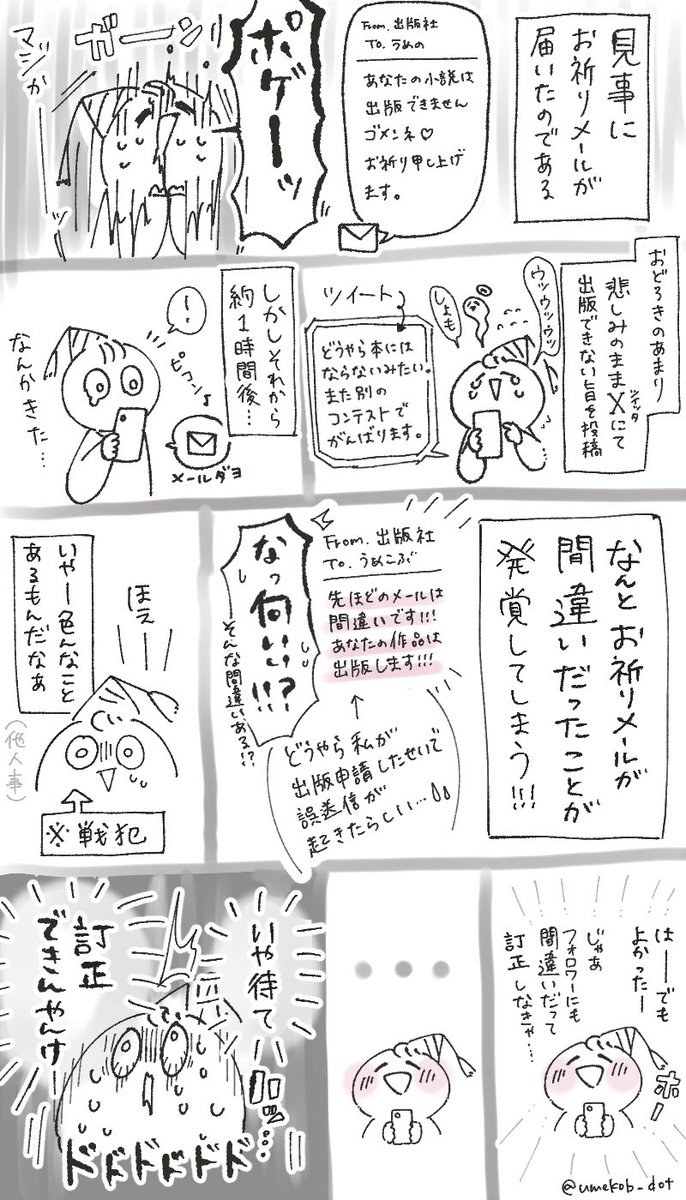 見事に
お祈りメールが
届いたのである
From. 出版社
To. うめの
あなたの小説は
出版できません
ゴメンネ♡
お祈り申し上げ
ます。
ポゲーッ
ガーン!
マジかーッ
おどろきのあまり
悲しみのままXにて
ツイッタ
出版できない旨を投稿
ウッウッウッ
しょも
ツイート
どうやら本には
ならないみたい。
また別の
コンテストで
がんばります。
しかしそれから
約1時間後…
!
ピコン♪
メールダヨ
なんかきた…
なんとお祈りメールが
間違いだったことが
発覚してしまう!!!
From. 出版社
To. うめこぶ
先ほどのメールは
間違いです!!!
あなたの作品は
出版します!!!
↑
どうやら私が
出版申請したせいで
誤送信が
起きたらしい…
なっ何ぃぃ!?!!
そんな間違いある!?
ほえー
いやー色んなこと
あるもんだなぁ
(他人事)
※戦犯
はーーでも
よかったー
じゃあ
フォロワーにも
間違いだって
訂正しなきゃ…
ホッ
•••
いや待て
訂正
できんやんけ
ドドドドドド
@umekob_dot